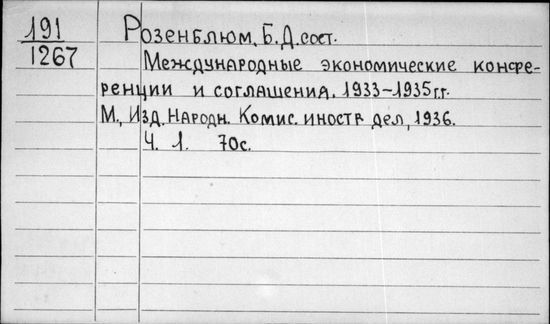 191
1267
Розенблюм, Б.Д. сост.
Международные экономические конфе-
ренции и соглашения. 1933-1935 г.г.
М., Изд. Народн. Комис. иностр. дел, 1936.
Ч. 1. 70с.